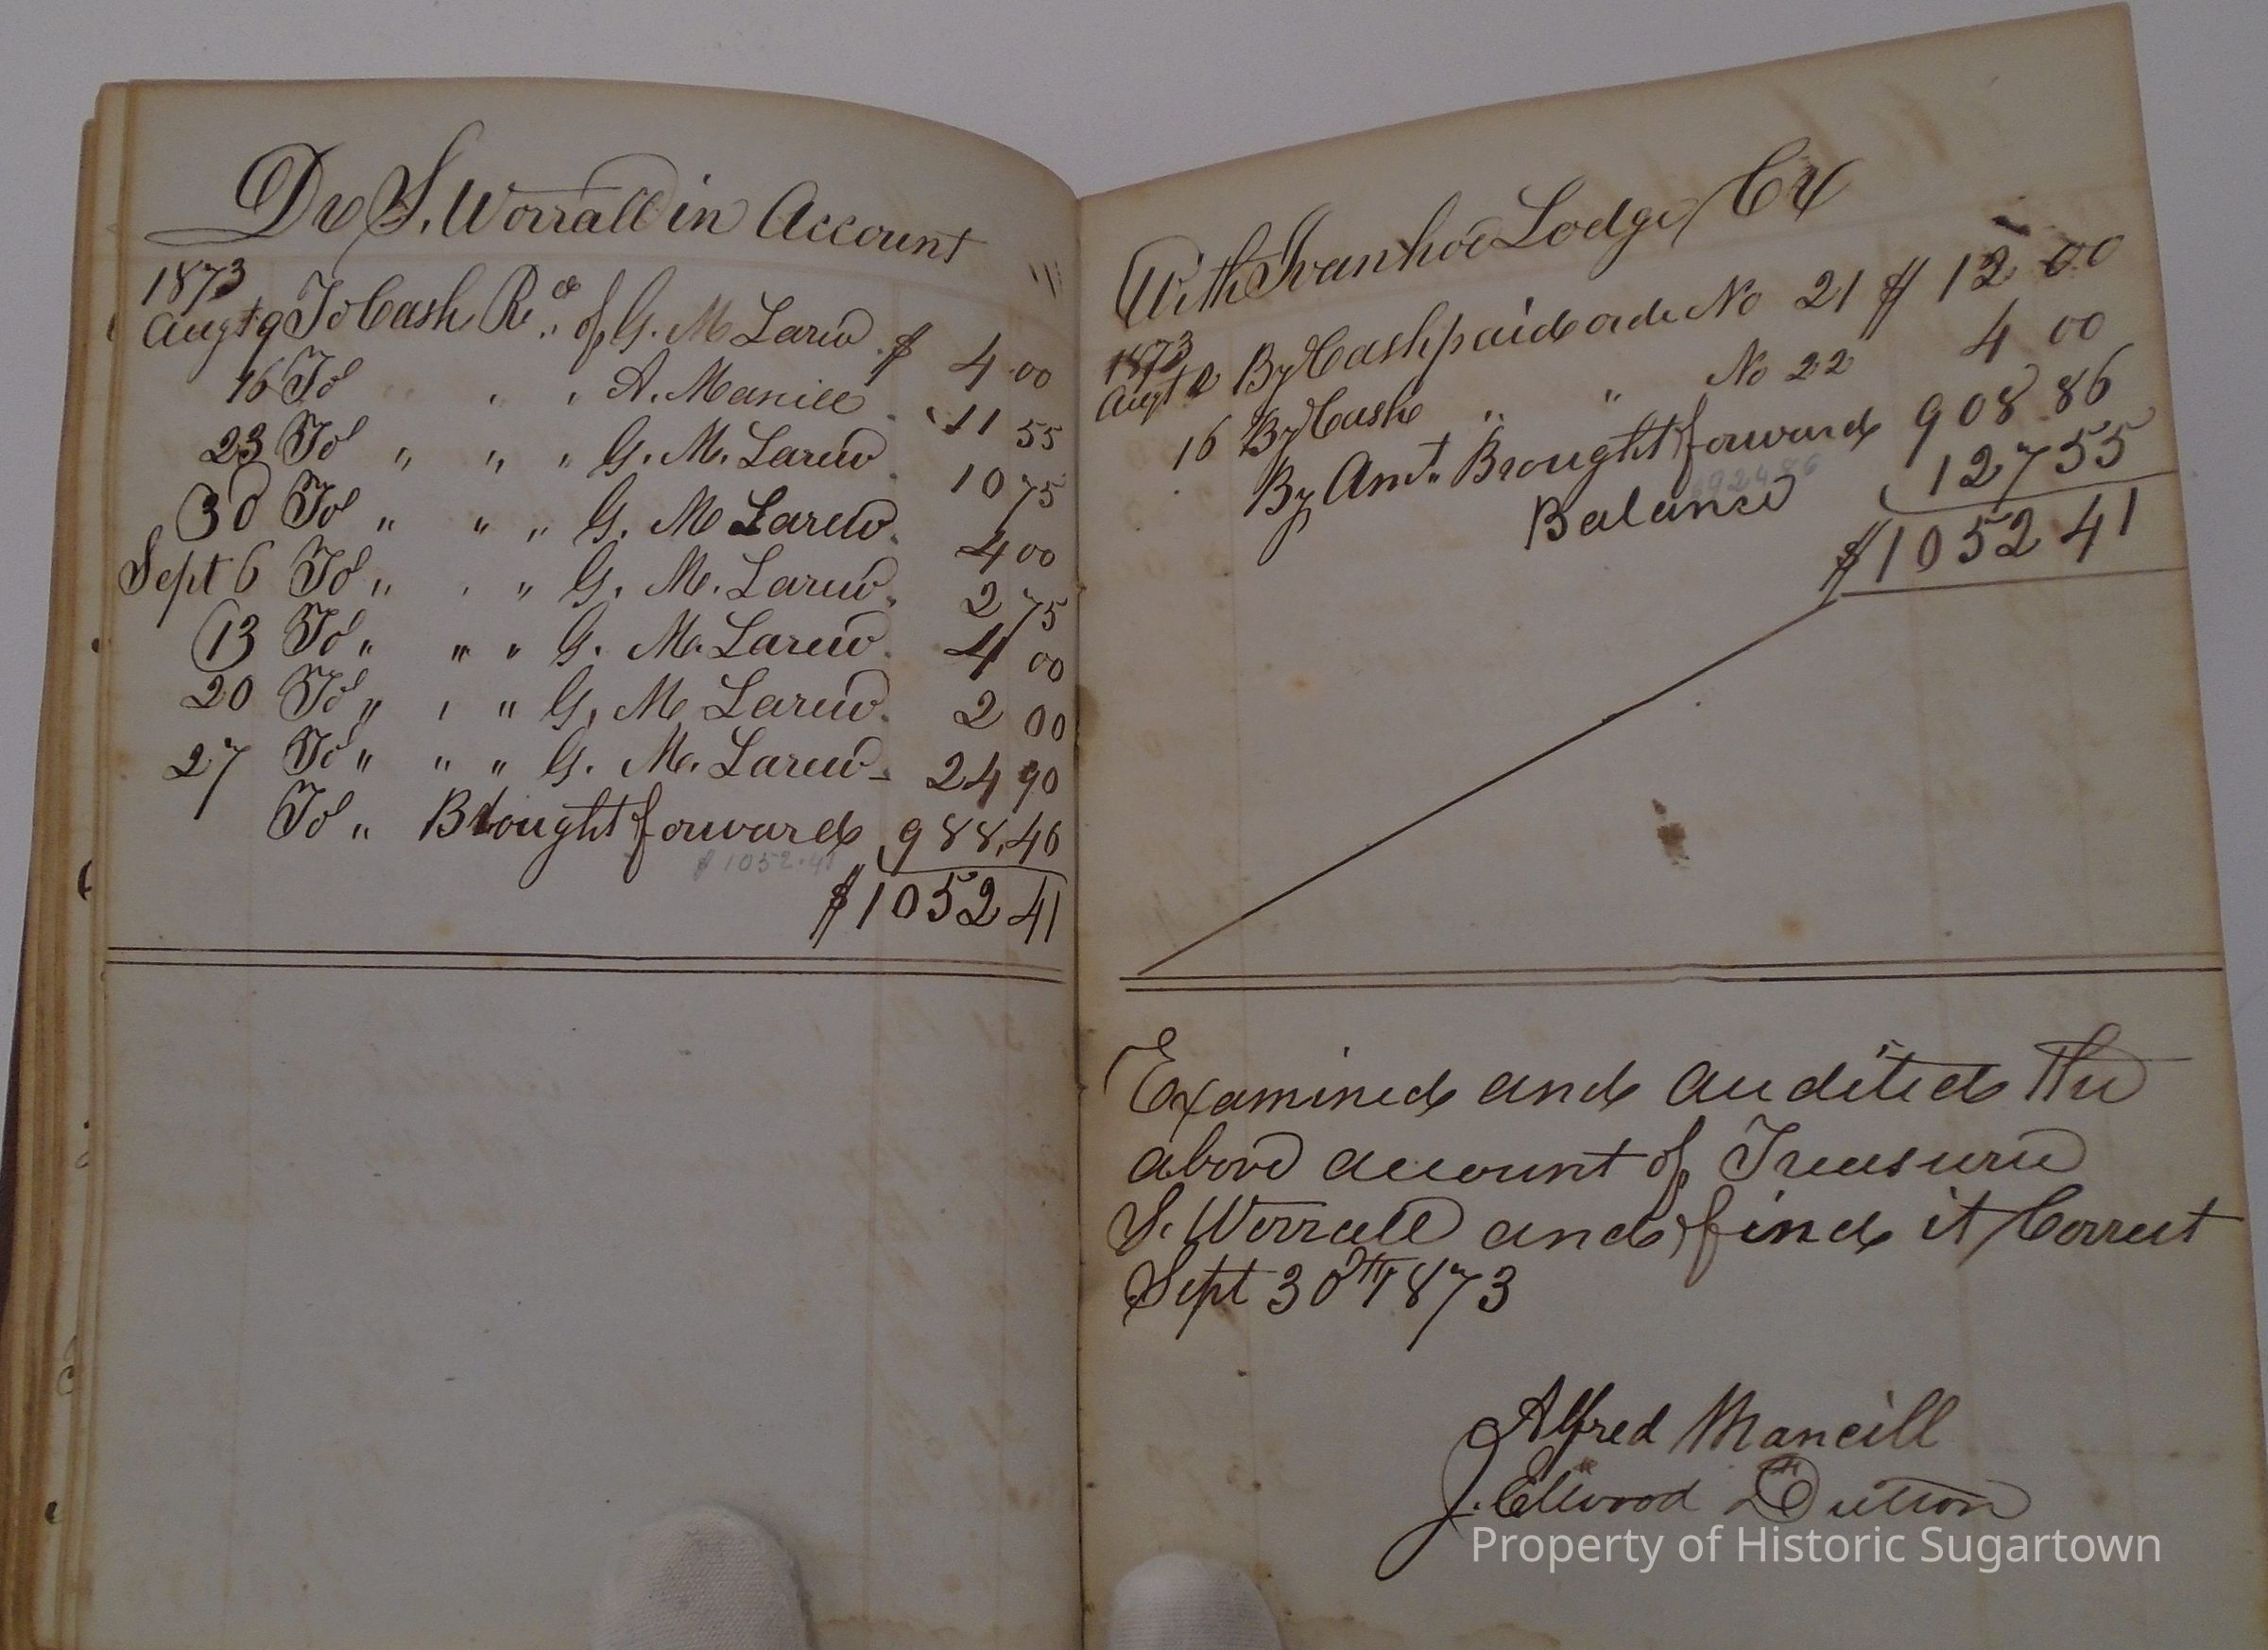 Dr S. Worrall in Account
1873
Augt 9 To Cash Recd of G. M Larew $ 4 00
16 To " " A. Mancill 11 55
23 To " " " G. M. Larew 10 75
30 To " " " G. M Larew. 4 00
Sept 6 To " " " G. M. Larew. 2 75
13 To " " " G. M. Larew. 4 00
20 To " " " G. M Larew. 2 00
27 To " " " G. M. Larew 24 90
To " Brought forward 988,46
$1052.41
$1052 41
With Ivanhoe Lodge Cr
1873
Augt 2 By Cash paid orde No 21 $ 12 00
16 By Cash " " No 22 4 00
By Amt. Brought forward 908 86
924 86
Balance 127 55
$1052 41
Examined and audited the
above account of Treasurer
S. Worrall and find it Correct
Sept 30th 1873
Alfred Mancill
J. Ellwood Dutton
Property of Historic Sugartown